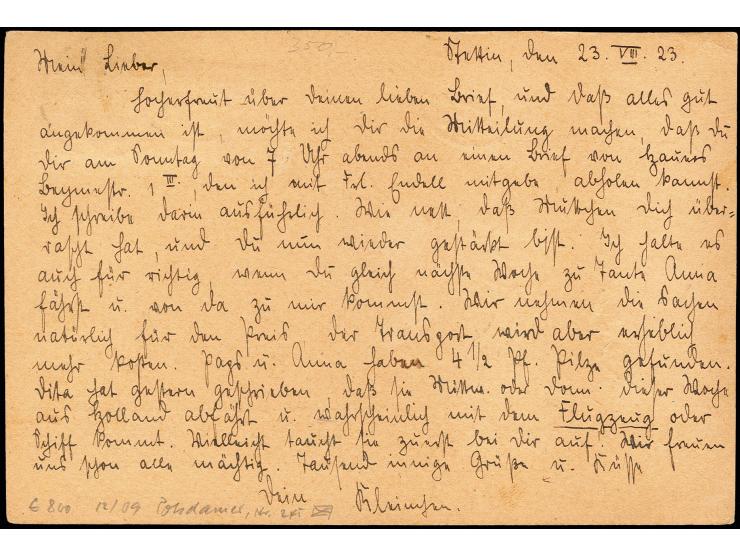 350,-
Stettin, den 23. VIII. 23.
Mein Lieber,
hocherfreut über Deinen lieben Brief, und daß alles gut
angekommen ist, möchte ich Dir die Mitteilung machen, daß Du
Dir am Sonntag von 7 Uhr abends an einen Brief von Hauers
Beymestr. 1 III, den ich mit Frl. Endell mitgebe, abholen kannst.
Ich schreibe darin ausführlich. Wie nett, daß Muttchen Dich über-
rascht hat, und Du nun wieder gestärkt bist. Ich halte es
auch für richtig, wenn Du gleich nächste Woche zu Tante Anna
fährst u. von da zu mir kommst. Wir nehmen die Sachen
natürlich für den Preis der Transport wird aber erheblich
mehr kosten. Paps u. Anna haben 4 1/2 Pf. Pilze gefunden.
Dita hat gestern geschrieben, daß sie Mittw. oder Donn. dieser Woche
aus Holland abfährt u. wahrscheinlich mit dem Flugzeug oder
Schiff kommt. Vielleicht taucht sie zuerst bei Dir auf. Wir freuen
uns schon alle mächtig. Tausend innige Grüße u. Küsse
Dein Kleinchen.
€ 800 12/09 Potsdamer, Nr.